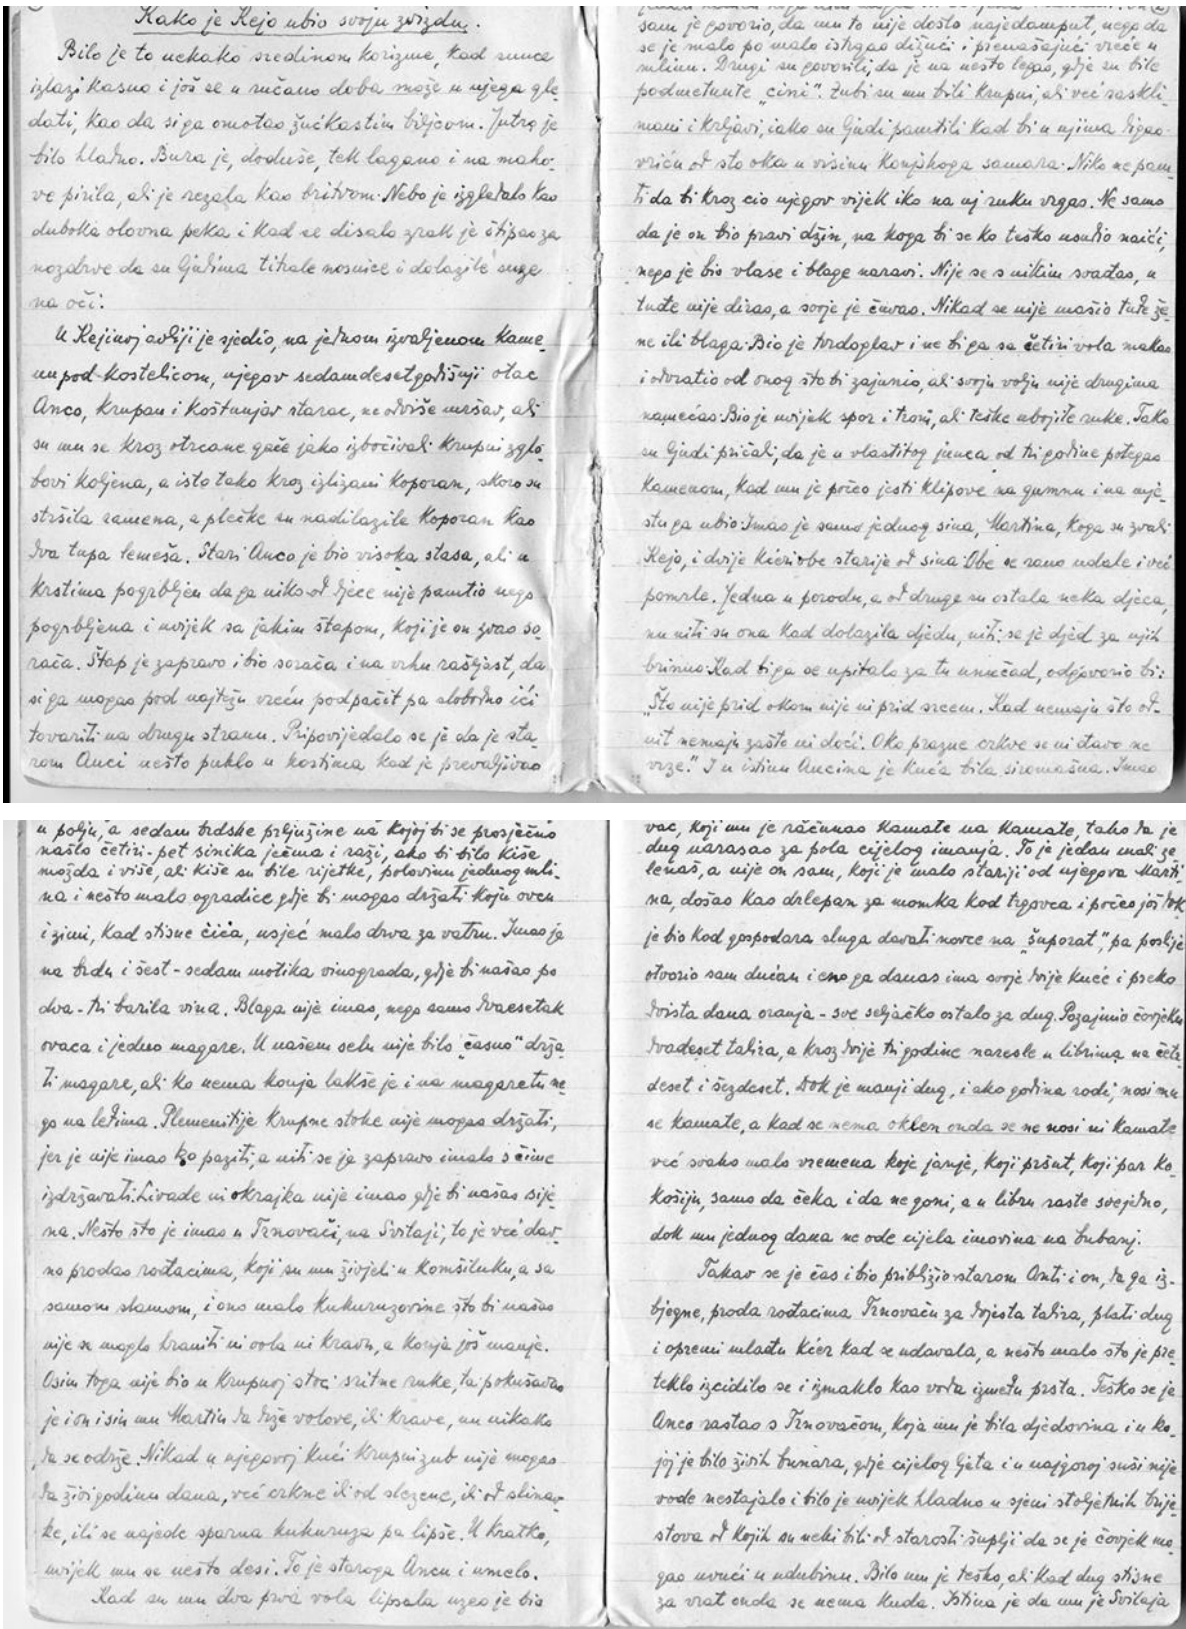 Kako je Kejo ubio svoju zvizdu.
Bilo je to nekako sredinom korizme, kad sunce
izlazi kasno i još se u ručano doba može u njega gle-
dati, kao da si ga omotao žućkastim biljcom. Jutro je
bilo hladno. Bura je, doduše, tek lagano i na maho-
ve pirila, ali je rezala kao britvom. Nebo je izgledalo kao
duboka olovna peka i kad se disalo zrak je štipao za
nozdrve da su ljudima titrale nosnice i dolazile suze
na oči.
U Kejinoj avliji je sjedio, na jednom izvaljenom kame-
nu pod kostelicom, njegov sedamdesetgodišnji otac
Anco, krupan i koštunjav starac, ne odviše mršav, ali
su mu se kroz otrcane gaće jako izbočivali krupni zglo-
bovi koljena, a isto tako kroz izlizani koporan, skoro su
stršila ramena, a plećke su nadilazile koporan kao
dva tupa lemeša. Stari Anco je bio visoka stasa, ali u
krstima pogrbljen da ga niko od djece nije pamtio nego
pogrbljena i uvijek sa jakim štapom, koji je on zvao so-
rača. Štap je zapravo i bio sorača i na vrhu rašljast, da
si ga mogao pod najtežu vreću podpačit pa slobodno ići
tovariti na drugu stranu. Pripovijedalo se je da je sta-
rom Anci nešto puklo u kostima kad je prevaljivao
sam je govorio, da mu to nije došlo najedamput, nego da
se je malo po malo istrgao dižući i prenašajući vreće u
mlinu. Drugi su govorili, da je na nešto legao, gdje su bile
podmetnute „cini". Zubi su mu bili krupni, ali već raskli-
mani i krljavi, iako su ljudi pamtili kad bi u njima digao
vriću od sto oka u visinu konjskoga samara. Niko ne pam-
ti da bi kroz cio njegov vijek iko na nj ruku vrgao. Ne samo
da je on bio pravi džin, na koga bi se ko teško usudio naići,
nego je bio vlase i blage naravi. Nije se s nikim svađao, u
tuđe nije dirao, a svoje je čuvao. Nikad se nije mašio tuđe že-
ne ili blaga. Bio je tvrdoglav i ne bi ga sa četiri vola makao
i odvratio od onog što bi zajunio, ali svoju volju nije drugima
namećao. Bio je uvijek spor i trom, ali teške ubojite ruke. Tako
su ljudi pričali, da je u vlastitog junca od tri godine potegao
kamenom, kad mu je počeo jesti klipove na gumnu i na mje-
stu ga ubio. Imao je samo jednog sina, Martina, koga su zvali
Kejo, i dvije kćeri obe starije od sina. Obe se rano udale i već
pomrle. Jedna u porodu, a od druge su ostala neka djeca,
nu niti su ona kad dolazila djedu, niti se je djed za njih
brinuo. Kad bi ga se upitalo za tu unučad, odgovorio bi:
„Što nije prid okom nije ni prid srcem. Kad nemaju što od-
nit nemaju zašto ni doći. Oko prazne crkve se ni đavo ne
vrze." I u istinu Ancina je kuća bila siromašna. Imao
u polju, a sedam brdske prljužine na kojoj bi se prosječno
našlo četiri-pet sinika ječma i raži, ako bi bilo kiše
možda i više, ali kiše su bile rijetke, polovinu jednog mli-
na i nešto malo ogradice gdje bi mogao držati koju ovcu
i zimi, kad stisne čića, usjeć malo drva za vatru. Imao je
na brdu i šest-sedam motika vinograda, gdje bi našao po
dva-tri barila vina. Blaga nije imao, nego samo dvaesetak
ovaca i jedno magare. U našem selu nije bilo „časno" drža-
ti magare, ali ko nema konja lakše je i na magaretu ne-
go na leđima. Plemenitije krupne stoke nije mogao držati,
jer je nije imao ko paziti, a niti se je zapravo imalo s čime
izdržavati. Livade ni okrajka nije imao gdje bi našao sije-
na. Nešto što je imao u Trnovači, na Svitaji, to je već dav-
no prodao rođacima, koji su mu živjeli u komšiluku, a sa
samom slamom, i ono malo kukuruzovine što bi našao
nije se moglo hraniti ni vola ni kravu, a konja još manje.
Osim toga nije bio u krupnoj stoci sritne ruke, ta pokušavao
je i on i sin mu Martin da drže volove, ili krave, nu nikako
da se održe. Nikad u njegovoj kući krupni zub nije mogao
da živi godinu dana, već crkne ili od slezene, ili od slinav-
ke, ili se najede sparna kukuruza pa lipše. U kratko,
uvijek mu se nešto desi. To je staroga Ancu i umelo.
Kad su mu dva prva vola lipsala uzeo je bio
vac, koji mu je računao kamate na kamate, tako da je
dug narasao za pola cijelog imanja. To je jedan mali ze-
lenaš, a nije on sam, koji je malo stariji od njegova Marti-
na, došao kao drlepan za momka kod trgovca i počeo još dok
je bio kod gospodara sluga davati novce na „šuporat", pa poslije
otvorio sam dućan i eno ga danas ima svoje dvije kuće i preko
dvista dana oranja - sve seljačko ostalo za dug. Pozajmio čovjeku
dvadeset talira, a kroz dvije tri godine naresle u librima na četr-
deset i šezdeset. Dok je manji dug, i ako godina rodi, nosi mu
se kamate, a kad se nema oklen onda se ne nosi ni kamate
već svako malo vremena koje janje, koji pršut, koji par ko-
košiju, samo da čeka i da ne goni, a u libru raste svejedno,
dok mu jednog dana ne ode cijela imovina na bubanj.
Takav se je čas i bio približio starom Anti i on, da ga iz-
bjegne, proda rođacima Trnovaču za dvjesta talira, plati dug
i opremi mlađu kćer kad se udavala, a nešto malo što je pre-
teklo izcidilo se i izmaklo kao voda između prsta. Teško se je
Anco rastao s Trnovačom, koja mu je bila djedovina i u ko-
joj je bilo živih bunara, gdje cijelog ljeta i u najgoroj suši nije
vode nestajalo i bilo je uvijek hladno u sjeni stoljetnih brije-
stova od kojih su neki bili od starosti šuplji da se je čovjek mo-
gao uvući u udubinu. Bilo mu je teško, ali kad dug stisne
za vrat onda se nema kuda. Istina je da mu je Svitaja